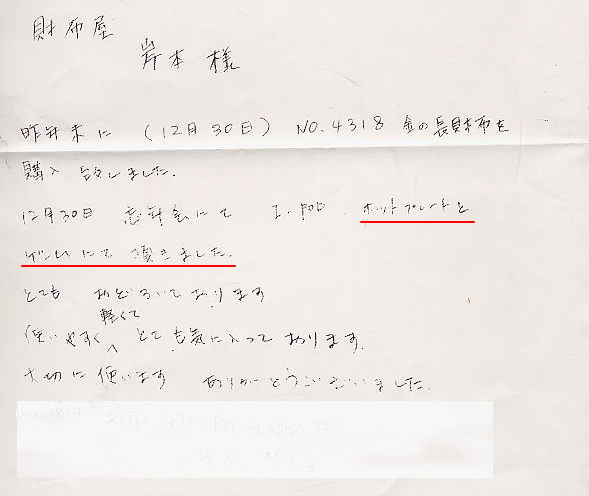 財布屋
岸本様
昨年末に (12月30日) NO.4318 金の長財布を
購入致しました.
12月30日 忘年会にて I.POD. ホットプレートと
ゲームにて頂きました.
とても おどろいております
軽くて
使いやすく とても気に入っております.
大切に使います ありがとうございました.